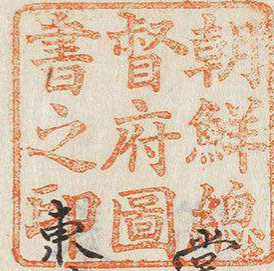 朝鮮總
督府圖
書之印
東